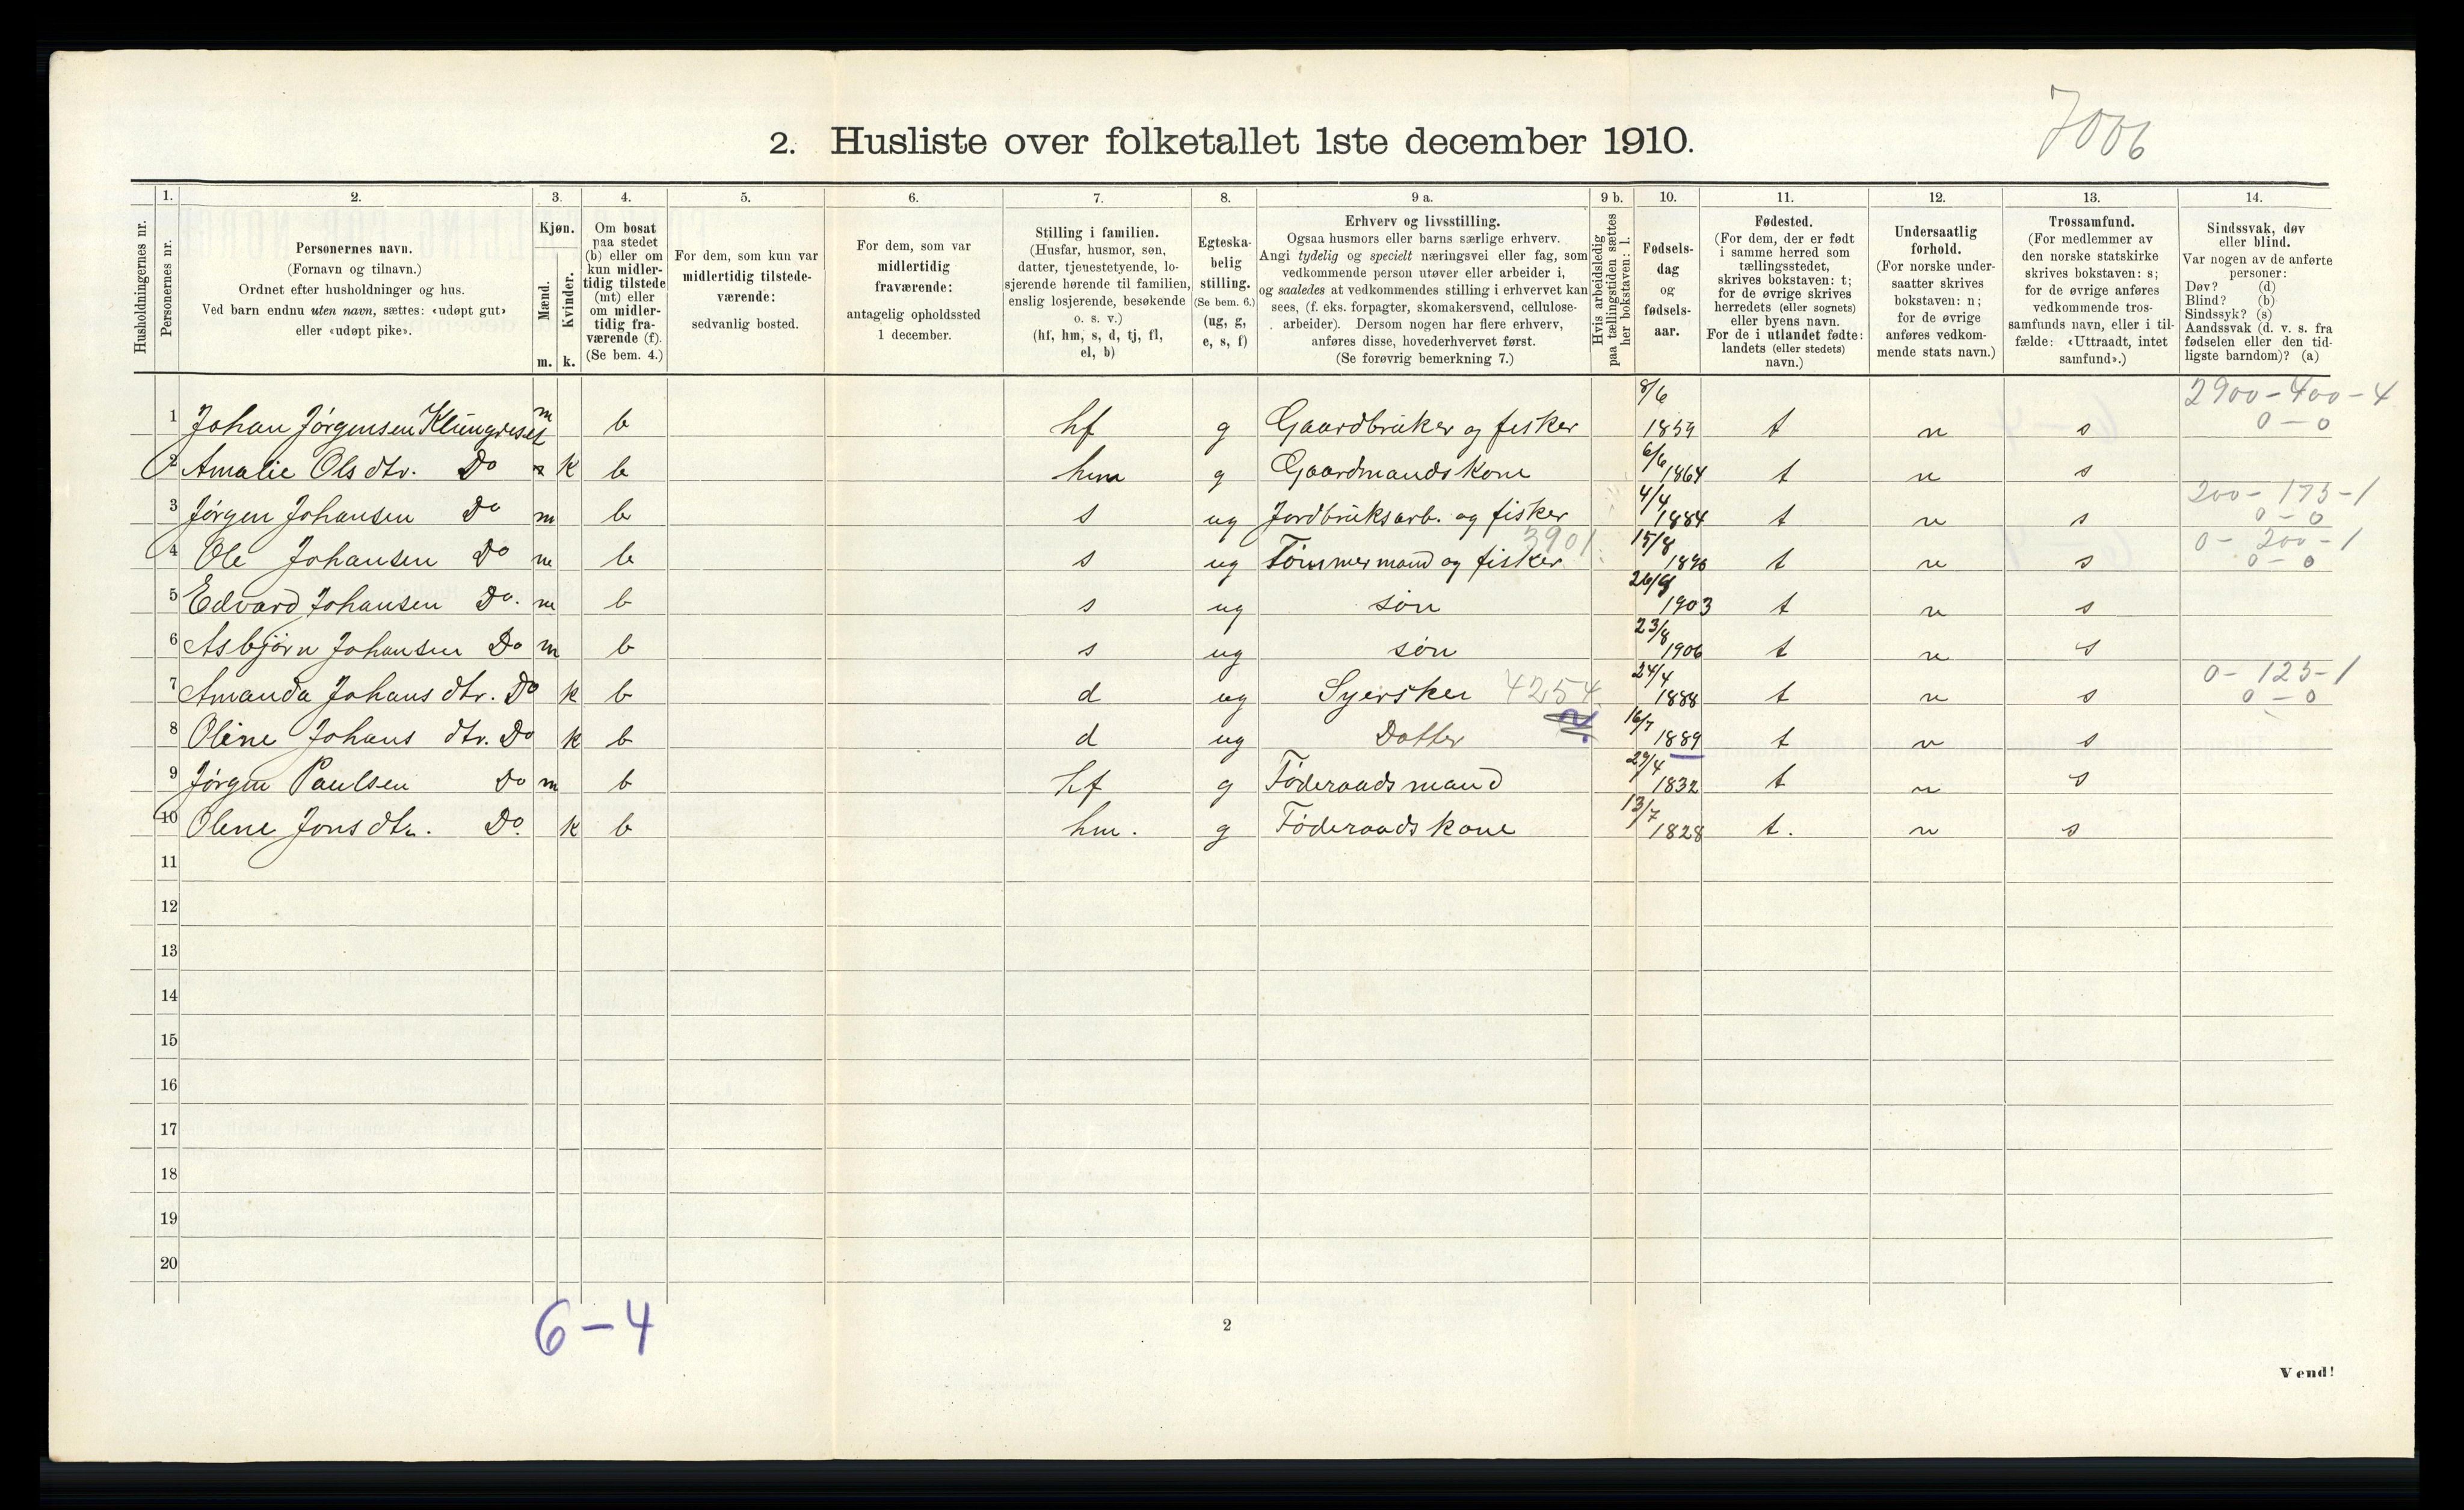 7006
2. Husliste over folketallet 1ste december 1910.
Husholdningernes nr.
1. Personernes nr.
2. Personernes navn. (Fornavn og tilnavn.) Ordnet efter husholdninger og hus. Ved barn endnu uten navn, sættes: «udøpt gut» eller «udøpt pike».
3. Kjøn. Mænd. m. Kvinder. k.
4. Om bosat paa stedet (b) eller om kun midlertidig tilstede (mt) eller om midlertidig fraværende (f). (Se bem. 4.)
5. For dem, som kun var midlertidig tilstedeværende: sedvanlig bosted.
6. For dem, som var midlertidig fraværende: antagelig opholdssted 1 december.
7. Stilling i familien. (Husfar, husmor, søn, datter, tjenestetyende, losjerende hørende til familien, enslig losjerende, besøkende o. s. v.) (hf, hm, s, d, tj, fl, el, b)
8. Egteskabelig stilling. (Se bem. 6.) (ug, g, e, s, f)
9 a. Erhverv og livsstilling. Ogsaa husmors eller barns særlige erhverv. Angi tydelig og specielt næringsvei eller fag, som vedkommende person utøver eller arbeider i, og saaledes at vedkommendes stilling i erhvervet kan sees, (f. eks. forpagter, skomakersvend, cellulosearbeider). Dersom nogen har flere erhverv, anføres disse, hovederhvervet først. (Se forøvrig bemerkning 7.)
9 b. Hvis arbeidsledig paa tællingstiden sættes her bokstaven: l.
10. Fødselsdag og fødselsaar.
11. Fødested. (For dem, der er født i samme herred som tællingsstedet, skrives bokstaven: t; for de øvrige skrives herredets (eller sognets) eller byens navn. For de i utlandet fødte: landets (eller stedets) navn.)
12. Undersaatlig forhold. (For norske undersaatter skrives bokstaven: n; for de øvrige anføres vedkommende stats navn.)
13. Trossamfund. (For medlemmer av den norske statskirke skrives bokstaven: s; for de øvrige anføres vedkommende trossamfunds navn, eller i tilfælde: «Uttraadt, intet samfund».)
14. Sindssvak, døv eller blind. Var nogen av de anførte personer: Døv? (d) Blind? (b) Sindssyk? (s) Aandssvak (d. v. s. fra fødselen eller den tidligste barndom)? (a)
1 Johan Jørgensen Klungreset m b hf g Gaardbruker og fisker 8/6 1859 t n s 2900-400-4 0-0
2 Amalie Olsdtr. Do k b hm g Gaardmandskone 6/6 1864 t n s
3 Jørgen Johansen Do m b s ug Jordbruksarb. og fisker 4/4 1884 t n s 200-175-1 0-0
4 Ole Johansen Do m b s ug Tømmermand og fisker 3901 15/8 1896 t n s 0-200-1 0-0
5 Edvard Johansen Do. m b s ug søn 26/9 1903 t n s
6 Asbjørn Johansen Do m b s ug søn 23/8 1906 t n s
7 Amanda Johansdtr. Do k b d ug Syerske 4254 24/4 1888 t n s 0-125-1 0-0
8 Oline Johansdtr. Do k b d ug Datter 16/7 1889 t n s
9 Jørgen Paulsen Do m b hf g Føderaadsmand 29/4 1832 t n s
10 Olene Jonsdtr. Do. k b hm. g Føderaadskone 13/7 1828 t. n s
11
12
13
14
15
16
17
18
19
20
6-4
2
Vend!